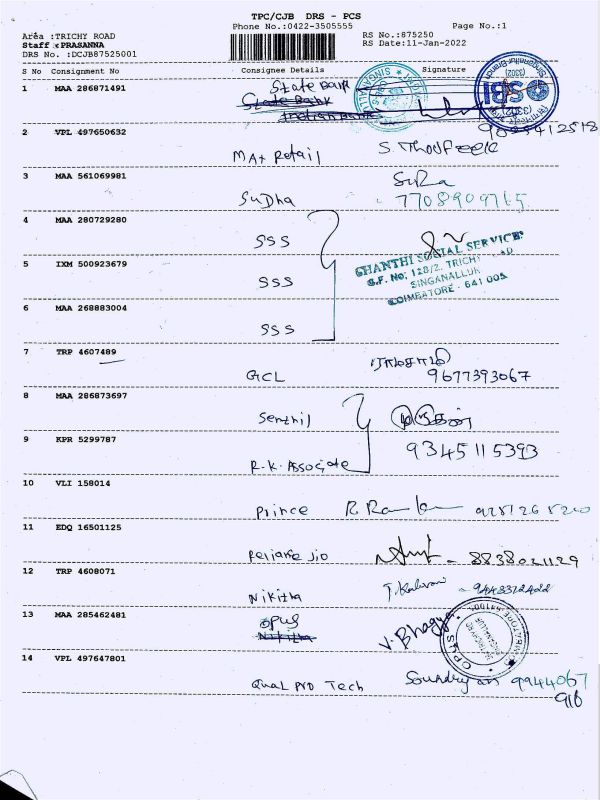 TPC/CJB DRS - PCS
Phone No.:0422-3505555
Page No.:1
Area :TRICHY ROAD
RS No.:875250
Staff :PRASANNA
RS Date:11-Jan-2022
DRS No. :DCJB87525001
S No Consignment No Consignee Details Signature
1 MAA 286871491 State Bank
State Bank
Indian Bank
SBI
(3302)
Singanallur Branch
2 VPL 497650632
Max Retail S. Thoufeek
3 MAA 561069981
Sudha
7708909715
4 MAA 280729280
SSS
SHANTHI SOCIAL SERVICE
G.F. No; 128/2, TRICHY ROAD
SINGANALLUR
COIMBATORE - 641 005
5 IXM 500923679
SSS
6 MAA 268883004
SSS
7 TRP 4607489
GCL 9677393067
8 MAA 286873697
Senthil
9 KPR 5299787 9345115393
R.K. Associate
10 VLI 158014
Prince
11 EDQ 16501125
Reliance Jio
12 TRP 4608071
Nikitha
13 MAA 285462481
opus
Nikitha V. Bhagya
OPUS
14 VPL 497647801
Qual Pro Tech 9944067
916